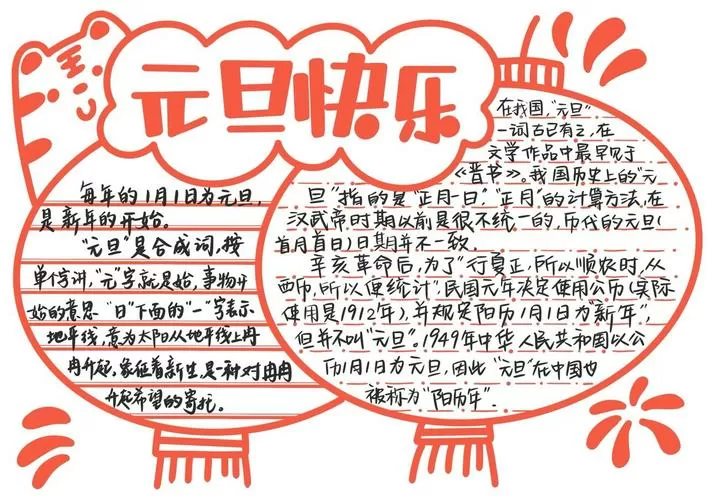 元旦快乐
每年的1月1日为元旦,
是新年的开始。
"元旦"是合成词,按
单个字讲,"元"字就是始,事物开
始的意思 "日"下面的"一"字表示
地平线,意为太阳从地平线上冉
冉升起,象征着新生,是一种对冉冉
升起希望的寄托。
在我国,"元旦"
一词古已有之,在
文学作品中最早见于
《晋书》。我国历史上的"元
旦"指的是"正月一日"."正月"的计算方法,在
汉武帝时期以前是很不统一的,历代的元旦(
首月首日)日期并不一致.
辛亥革命后,为了"行夏正,所以顺农时,从
西历,所以便统计",民国元年决定使用公历(实际
使用是1912年),并规定阳历1月1日为"新年",
但并不叫"元旦"。1949年中华人民共和国以公
历1月1日为元旦,因此"元旦"在中国也
被称为"阳历年".